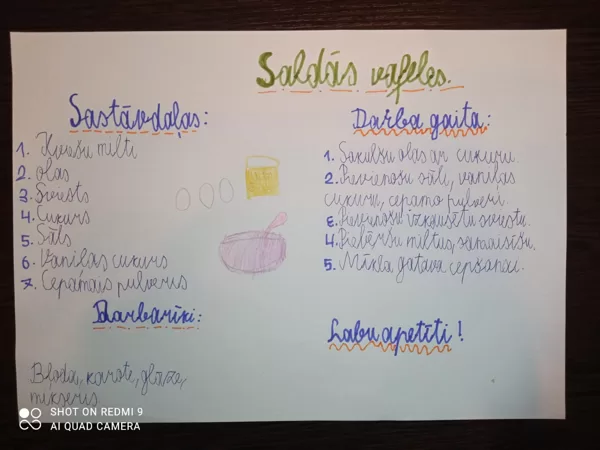 Saldās vafeles.
Sastāvdaļas:
1. Kviešu milti
2. olas
3. Sviests
4. Cukurs
5. Sāls
6. Vaniļas cukurs
7. Cepamais pulveris
Darbarīki:
Bļoda, karote, glāze,
mikseris.
Darba gaita:
1. Sakulšu olas ar cukuru.
2. Pievienošu sāli, vaniļas
cukuru, cepamo pulveri.
3. Pievienošu izkausētu sviestu.
4. Piebēršu miltus, samaisīšu.
5. Mīkla gatava cepšanai.
Labu apetīti!
SHOT ON REDMI 9
AI QUAD CAMERA